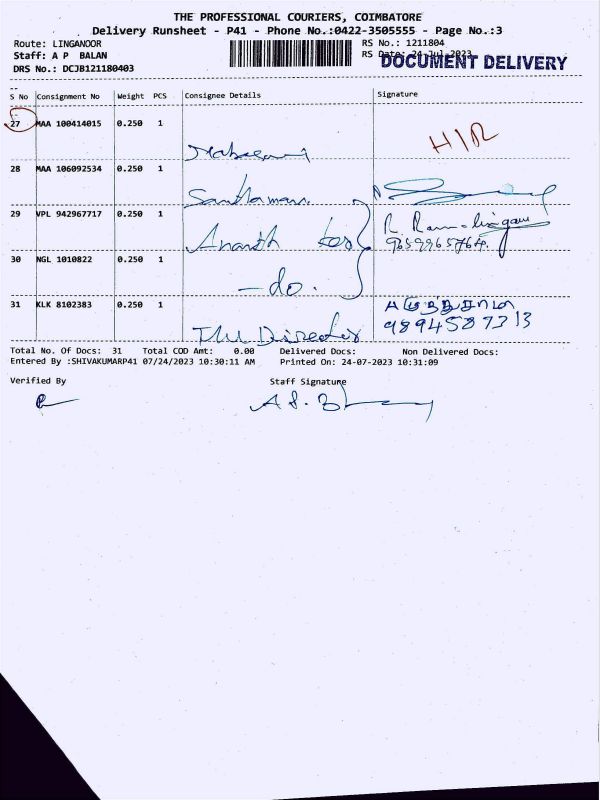 THE PROFESSIONAL COURIERS, COIMBATORE
Delivery Runsheet - P41 - Phone No.:0422-3505555 - Page No.:3
Route: LINGANOOR
RS No.: 1211804
Staff: A P BALAN
RS Date: 24-Jul-2023
DOCUMENT DELIVERY
DRS No.: DCJB121180403
S No Consignment No Weight PCS Consignee Details Signature
27 MAA 100414015 0.250 1
H/R
28 MAA 106092534 0.250 1
29 VPL 942967717 0.250 1 Ananth
9659965764.
30 NGL 1010822 0.250 1 -do.
31 KLK 8102383 0.250 1 The Director
9894587313
Total No. Of Docs: 31 Total COD Amt: 0.00 Delivered Docs: Non Delivered Docs:
Entered By :SHIVAKUMARP41 07/24/2023 10:30:11 AM Printed On: 24-07-2023 10:31:09
Verified By Staff Signature